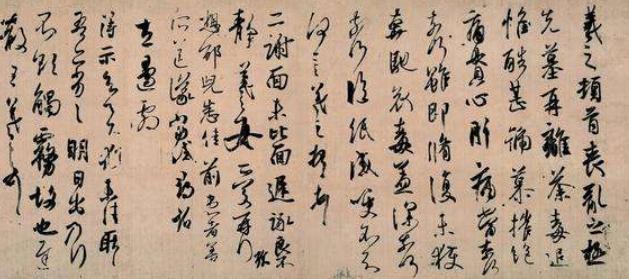 羲之頓首喪亂之極
先墓再離荼毒追
惟酷甚號慕摧絕
痛貫心肝痛當奈何
奈何雖即脩復未獲
奔馳哀毒益深奈何
奈何臨紙感哽不知
何言羲之頓首頓首
二謝面未比面遲詠良不
靜羲之女愛再拜
想邵兒悉佳前患者善
所送議當試尋
左邊劇
得示知足下猶未佳耿耿
吾亦劣劣明日出乃行
不欲觸霧故也遲
散王羲之頓首